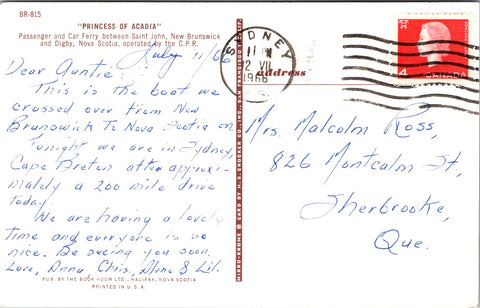 BR-815
"PRINCESS OF ACADIA"
Passenger and Car Ferry between Saint John, New Brunswick
and Digby, Nova Scotia, operated by the C.P.R.
July 11/66
Dear Auntie:
This is the boat we
crossed over from New
Brunswick To Nova Scotia on
Tonight we are in Sydney,
Cape Breton after approxi-
mately a 200 mile drive
today.
We are having a lovely
time and everyone is so
nice. Be seeing you soon.
Love, Anna, Chris, & Lil.
PUB. BY THE BOOK ROOM LTD., HALIFAX, NOVA SCOTIA
PRINTED IN U.S.A.
MIRRO-KROME ® CARD BY H. S. CROCKER CO., INC., SAN FRANCISCO 1, CALIF.
SYDNEY
11
12 VII
1966
address
4
CANADA
Mrs. Malcolm Ross,
826 Montcalm St,
Sherbrooke,
Que.